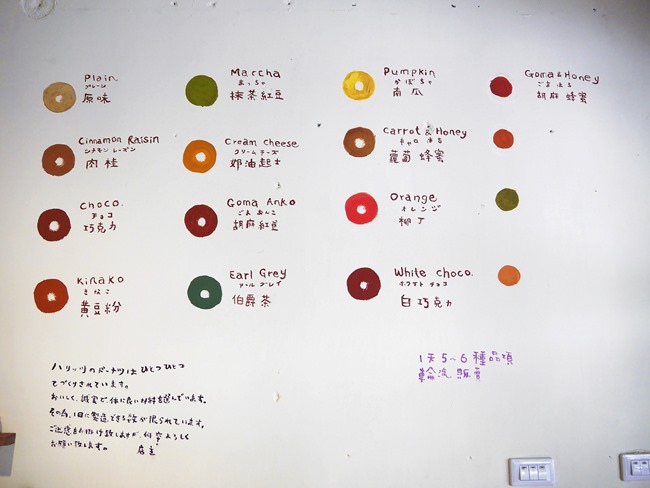 Plain
プレーン
原味
Maccha
まっちゃ
抹茶紅豆
Pumpkin
かぼちゃ
南瓜
Goma & Honey
胡麻 蜂蜜
Cinnamon Raisin
シナモン レーズン
肉桂
Cream Cheese
クリーム チーズ
奶油起士
Carrot & Honey
蘿蔔 蜂蜜
Choco.
チョコ
巧克力
Goma Anko
ごま あんこ
胡麻紅豆
Orange
オレンジ
柳丁
Kinako
きなこ
黄豆粉
Earl Grey
アール グレイ
伯爵茶
White choco.
ホワイト チョコ
白巧克力
ハリッツのドーナツは ひとつひとつ
てづくりされています。
おいしく、誠実で、体に良い材料を選んでいます。
その為、1日に製造できる数が限られています。
ご迷惑をお掛け致しますが、何卒よろしく
お願い致します。 店主
1天5~6種品項
輪流 販賣